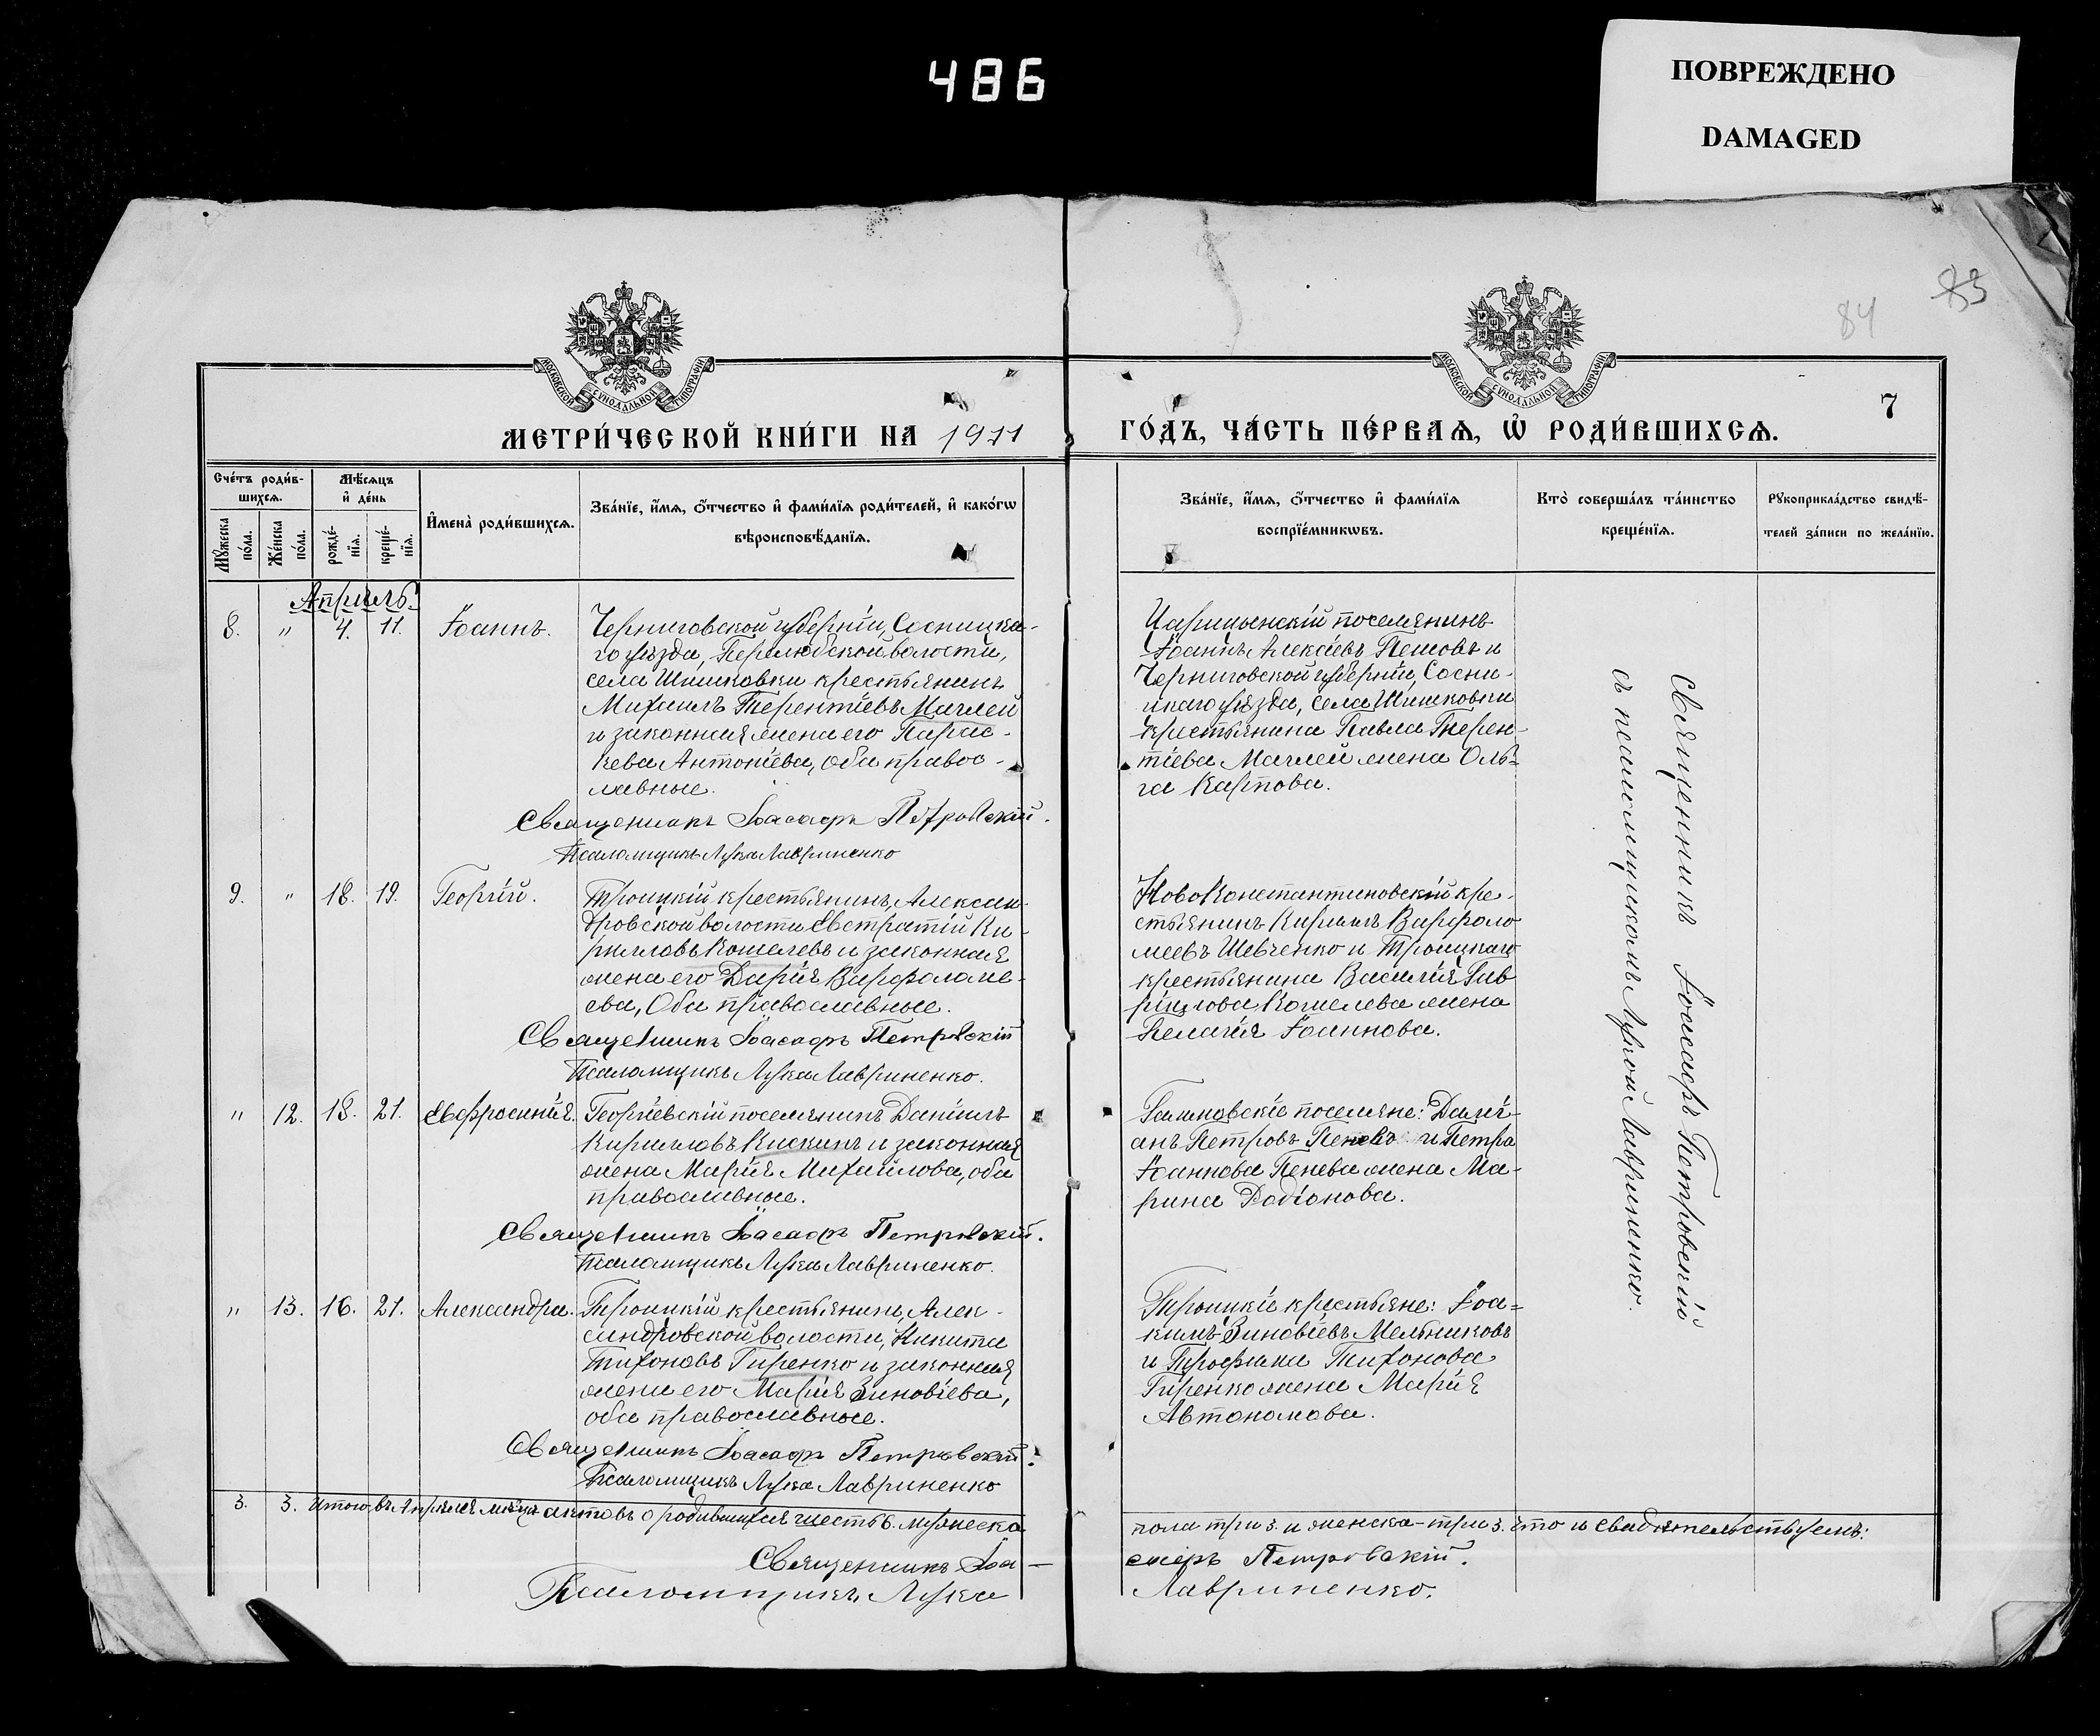 486
ПОВРЕЖДЕНО
DAMAGED
83
84
7
МОСКОВСКОЙ СѴНОДАЛЬНОЙ ТИПОГРАФІИ
МОСКОВСКОЙ СѴНОДАЛЬНОЙ ТИПОГРАФІИ
МЕТРИ́ЧЕСКОЙ КНИ́ГИ НА 1911
ГО́ДЪ, ЧА́СТЬ ПЕ́РВАѦ, Ѡ҆ РОДИ́ВШИХСѦ.
Сче́тъ роди́в-
шихсѧ.
Мѣ́сѧцъ
и҆ де́нь
Мꙋ́жеска
по́ла.
Же́нска
по́ла.
рожде́-
нїѧ.
креще́-
нїѧ.
И҆мена̀ роди́вшихсѧ.
Зва́нїе, и҆́мѧ, ѻ҆́тчество и҆ фами́лїѧ роди́телей, и҆ како́гѡ
вѣроисповѣ́данїѧ.
Зва́нїе, и҆́мѧ, ѻ҆́тчество и҆ фами́лїѧ
воспрїе́мникѡвъ.
Кто̀ соверша́лъ та́инство
креще́нїѧ.
Рꙋкоприкла́дство свидѣ́-
телей за́писи по жела́нїю.
Апрѣль
8. " 4. 11. Іоаннъ.
Черниговской губерніи, Сосницка-
го уѣзда, Перелюбской волости,
села Шишковки крестьянинъ
Михаилъ Терентіевъ Мачлей
и законная жена его Парас-
кева Антоніева, оба правос-
лавные.
Священникъ Іоасафъ Петровскій.
Псаломщикъ Лука Лавриненко
Царицынскій поселянинъ
Іоаннъ Алексіевъ Пешовъ и
Черниговской губерніи, Сосни-
цкаго уѣзда, села Шишковки
крестьянина Павла Терен-
тіева Мачлей жена Оль-
га Карпова.
9. " 18. 19. Георгій.
Троицкій крестьянинъ, Алексан-
дровской волости Евстратій Ки-
рилловъ Кошелевъ и законная
жена его Дарія Варфоломе-
ева, Оба православные.
Священникъ Іоасафъ Петровскій
Псаломщикъ Лука Лавриненко.
НовоКонстантиновскій кре-
стьянинъ Кириллъ Варфоло
меевъ Шевченко и Троицкаго
крестьянина Василія Гав
ріилова Кошелева жена
Пелагія Іоаннова.
" 12. 18. 21. Евфросинія.
Георгіевскій поселянинъ Даніилъ
Кирилловъ Кискинъ и законная
жена Марія Михайлова, оба
православные.
Священникъ Іоасафъ Петровскій.
Псаломщикъ Лука Лавриненко.
Галиновскіе поселяне: Даміт-
анъ Петровъ Пеневъ и Петра
Іоаннова Пенева жена Ма-
рина Родіонова.
" 13. 16. 21. Александра.
Троицкій крестьянинъ, Алек-
сандровской волости, Никита
Тихоновъ Гиренко и законная
жена его Марія Зиновіева,
оба православные.
Священникъ Іоасафъ Петровскій.
Псаломщикъ Лука Лавриненко
Троицкіе крестьяне: Іоа-
кимъ Зиновіевъ Мельниковъ
и Трофима Тихонова
Гиренко жена Марія
Автономова.
Священникъ Іоасафъ Петровскій
съ псаломщикомъ Лукой Лавриненко.
3. 3. Итого въ Апрѣлѣ мѣсяцѣ актовъ о родившихся шесть 6. мужеска
пола три 3. и женска - три 3. Что и свидѣтельствуемъ:
Священникъ Іоа-
сафъ Петровскій.
Псаломщикъ Лука
Лавриненко.